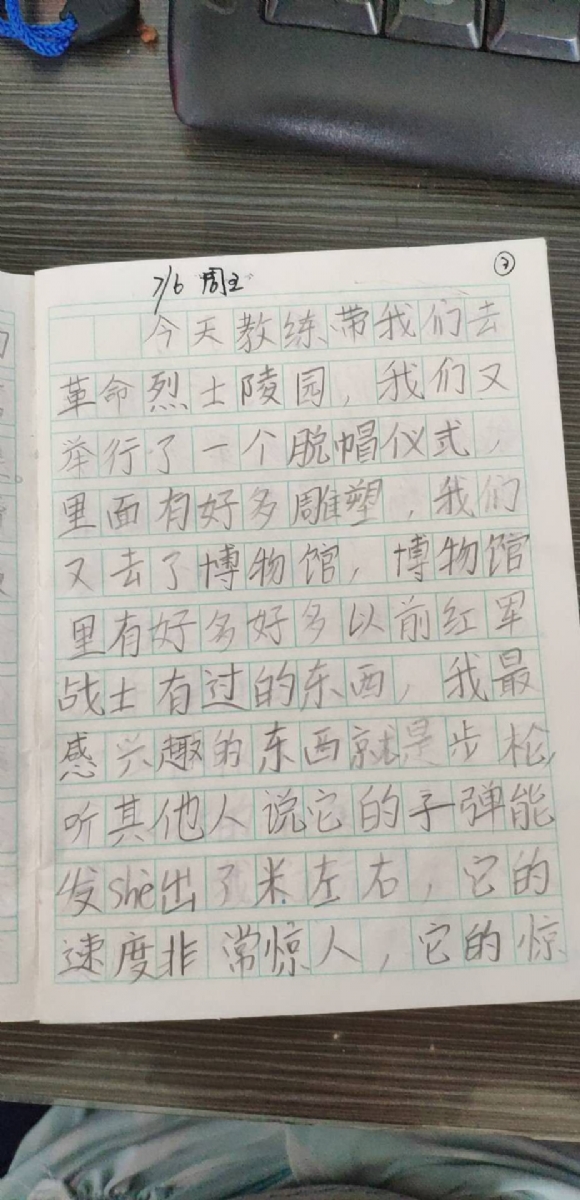 7/6 周五
②
今天教练带我们去
革命烈士陵园，我们又
举行了一个脱帽仪式，
里面有好多雕塑，我们
又去了博物馆，博物馆
里有好多好多以前红军
战士有过的东西，我最
感兴趣的东西就是步枪，
听其他人说它的子弹能
发shè出了米左右，它的
速度非常惊人，它的惊